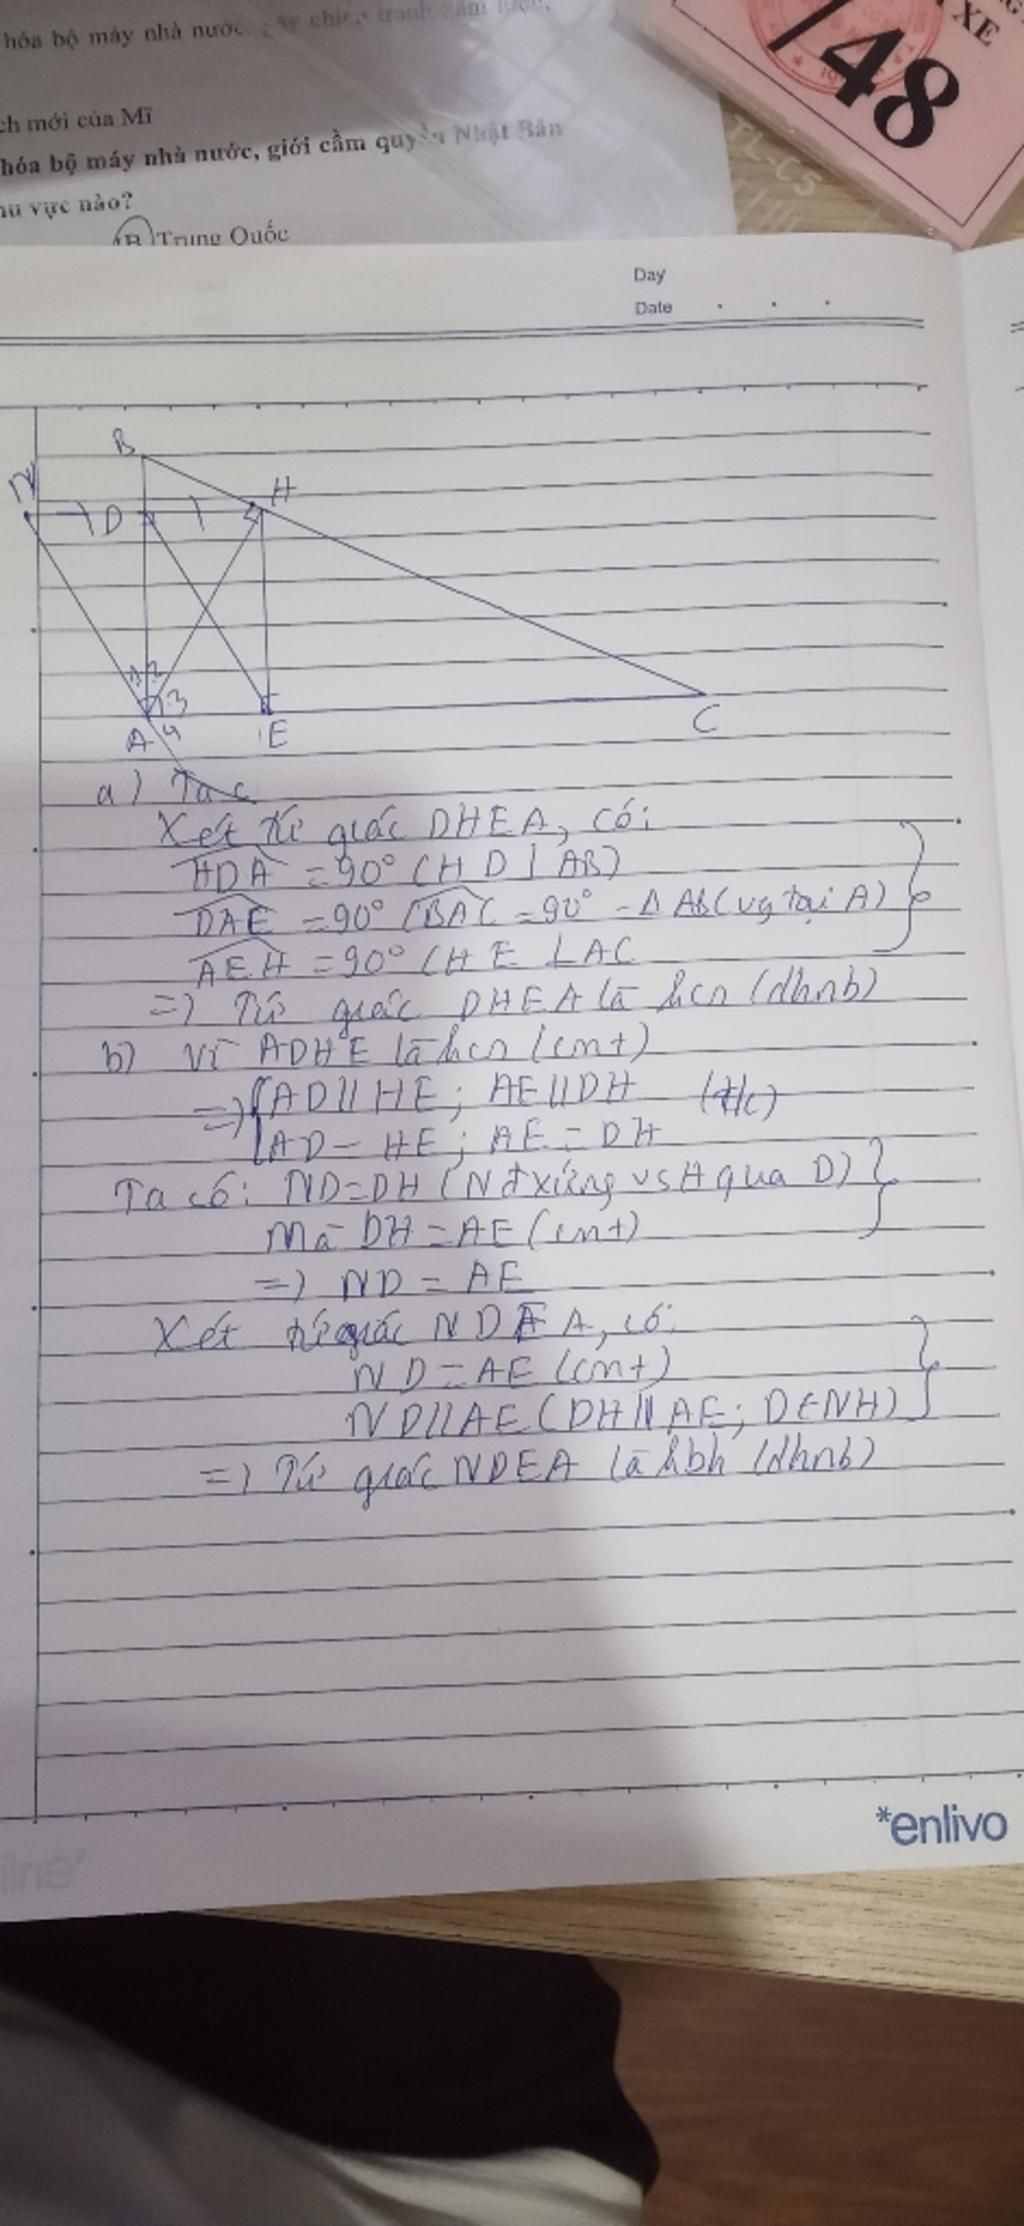 hóa bộ máy nhà nước,
ch mới của Mĩ
hóa bộ máy nhà nước, giới cầm quyền Nhật Bản
vực nào?
B Trung Quốc
XE
148
TL-C5
Day
Date
B
N
D
H
1 2
3
A 4
E
C
a) Ta c
Xét tứ giác DHEA, có:
HDA = 90° (HD ⊥ AB)
DAE = 90° (BAC = 90° - Δ ABC vg tại A)
AEH = 90° (HE ⊥ AC
=) Tứ giác DHEA là hcn (dhnb)
b) Vì ADHE là hcn (cmt)
=) AD // HE ; AE // DH (t/c)
AD = HE ; AE = DH
Ta có: ND = DH (N đ xứng vs H qua D)
Mà DH = AE (cmt)
=) ND = AE
Xét tứ giác NDEA, có:
ND = AE (cmt)
ND // AE (DH // AE ; D ∈ NH)
=) Tứ giác NDEA là hbh (dhnb)
*enlivo